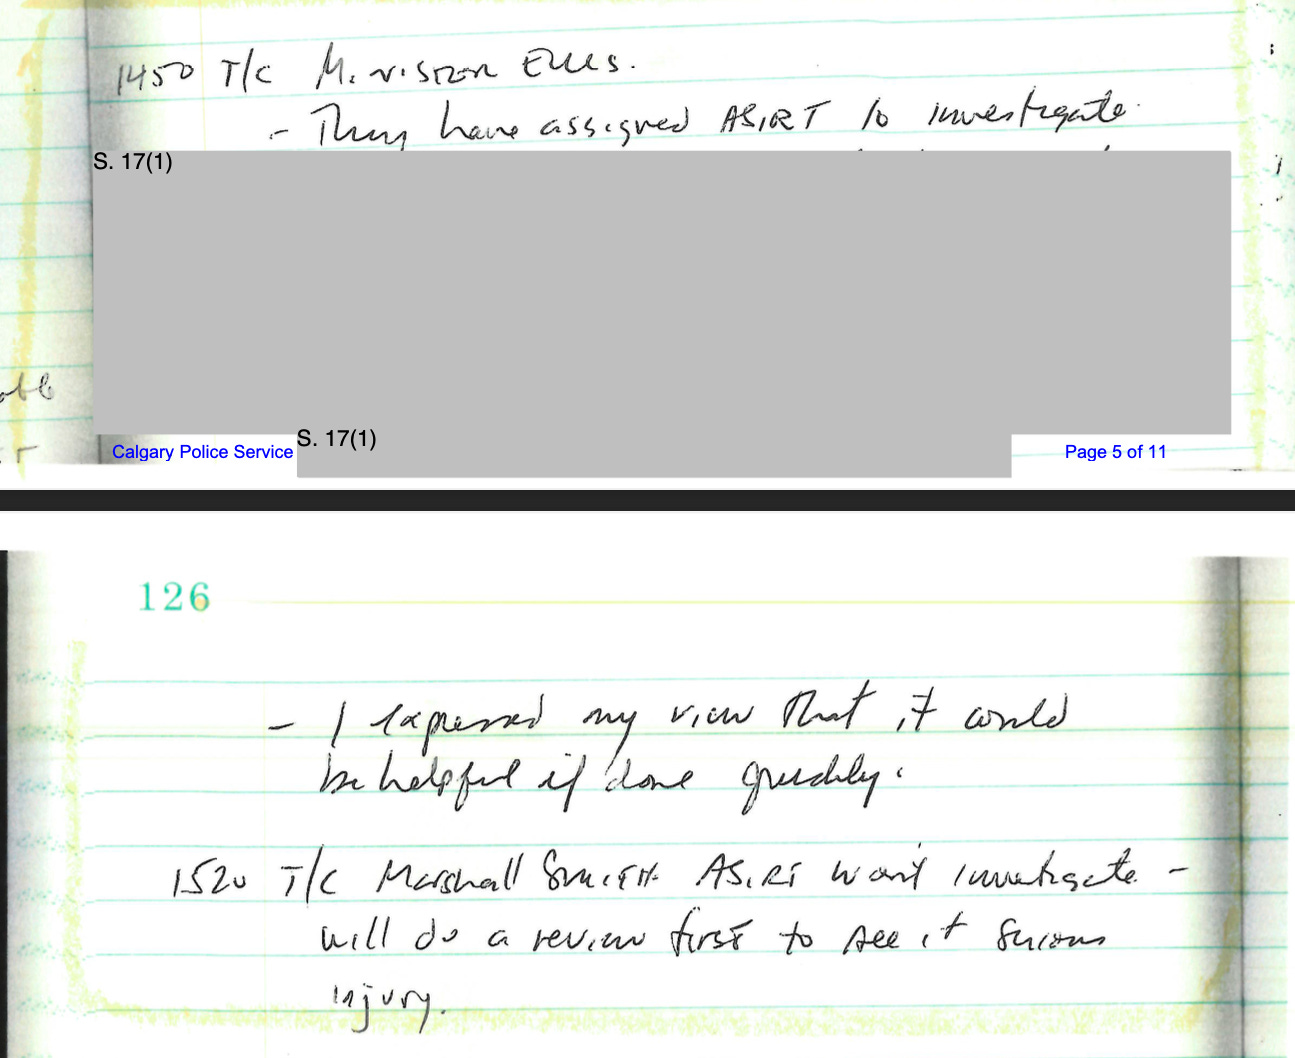 1450 T/C Minister Ellis.
- They have assigned ASIRT to investigate.
S. 17(1)
S. 17(1)
Calgary Police Service
Page 5 of 11
126
- I expressed my view that it would
be helpful if done quickly.
1520 T/C Marshall Smith ASIRT won't investigate -
will do a review first to see if serious
injury.